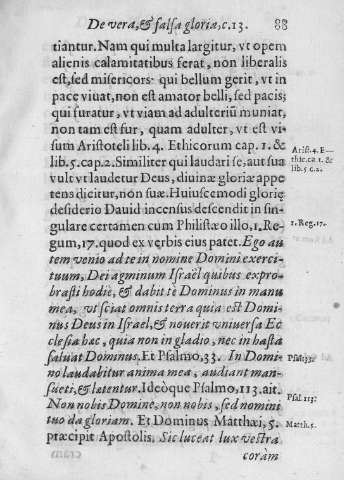 De vera, & falsa gloria, c. 13. 88
tiantur. Nam qui multa largitur, vt opem
alienis calamitatibus ferat, non liberalis
est, sed misericors: qui bellum gerit, vt in
pace viuat, non est amator belli, sed pacis;
qui furatur, vt viam ad adulteriũ muniat,
non tam est fur, quam adulter, vt est vi-
sum Aristoteli lib. 4. Ethicorum cap. 1. &
Arist. 4. E-
lib. 5. cap. 2. Similiter qui laudari se, aut sua
thic. ca. 1. &
lib. 5 c. 2.
vult vt laudetur Deus, diuinæ gloriæ appe
tens dicitur, non suæ. Huiuscemodi glorię
desiderio Dauid incensus descendit in sin-
gulare certamen cum Philistæo illo, 1. Re-
1. Reg. 17.
gum, 17. quod ex verbis eius patet. Ego au
tem venio ad te in nomine Domini exerci-
tuum, Dei agminum Israël quibus expro-
brasti hodie, & dabit tè Dominus in manu
mea, vt sciat omnis terra quia est Domi-
nus Deus in Israel, & nouerit vniuersa Ec
clesia hæc, quia non in gladio, nec in hasta
saluat Dominus. Et Psalmo, 33. In Domi-
Psal. 33.
no laudabitur anima mea, audiant man-
sueti, & lætentur. Ideòque Psalmo, 113. ait.
Non nobis Domine, non nobis, sed nomini
Psal. 113.
tuo da gloriam. Et Dominus Matthæi, 5.
Matth. 5.
præcipit Apostolis. Sic luceat lux vestra
coram